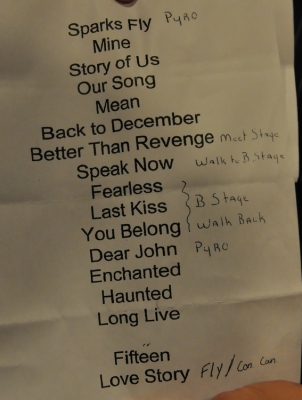 Sparks Fly Pyro
Mine
Story of Us
Our Song
Mean
Back to December
Better Than Revenge Meet Stage
Speak Now Walk to B Stage
Fearless
Last Kiss B Stage
You Belong Walk Back
Dear John Pyro
Enchanted
Haunted
Long Live
Fifteen
Love Story Fly/Con Can